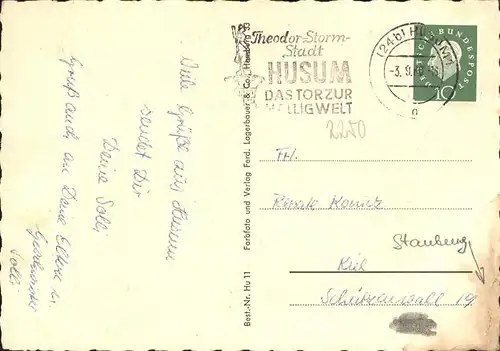 Viele Grüße aus Husum
sendet Dir
Deine
Gruß auch an Deine Eltern u.
Farbfoto und Verlag Ferd. Lagerbauer & Co., Hamburg 33
Best.-Nr. Hu 11
Theodor-Storm-
Stadt
HUSUM
DAS TOR ZUR
HALLIGWELT
(24b) HUSUM
-3. 9.
DEUTSCHE BUNDESPOST
10
2250
Frl.
Renate
Kiel
Schützenwall 19